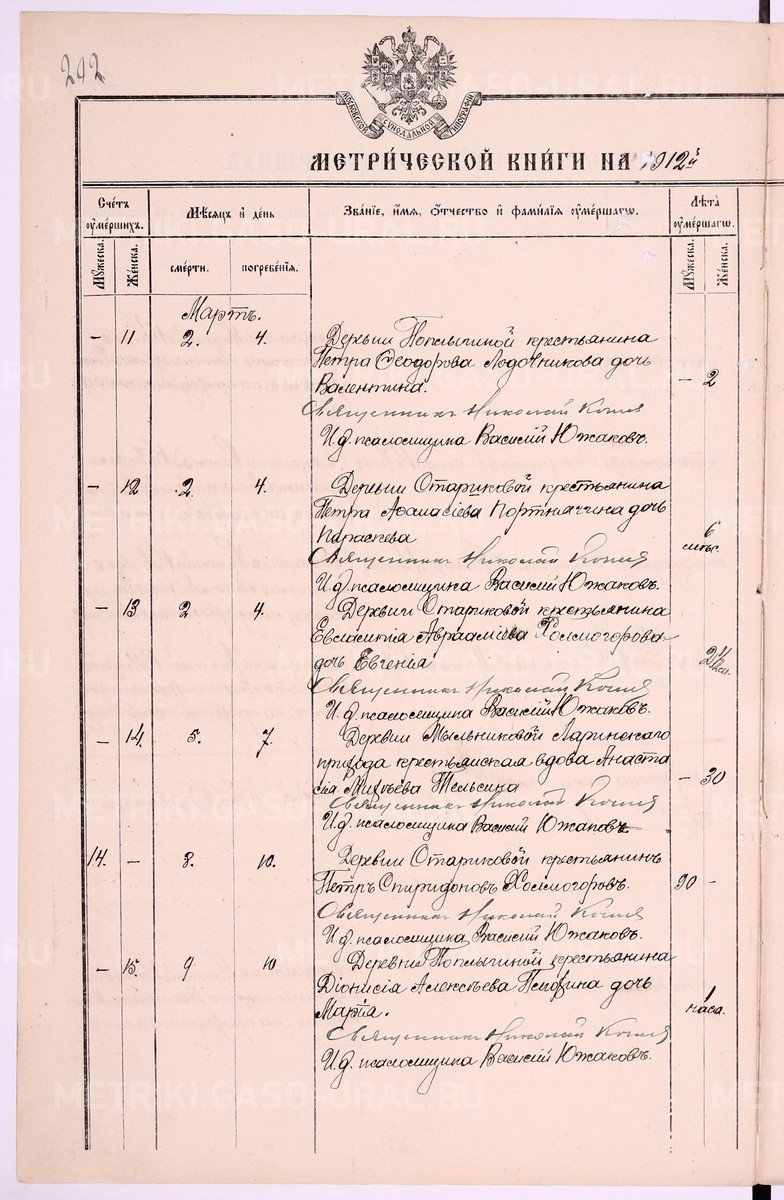 292
МОСКОВСКОЙ СѴНОДАЛЬНОЙ ТИПОГРАФІИ
МЕТРИ́ЧЕСКОЙ КНИ́ГИ НА 1912й
Сче́тъ ᲂу҆ме́ршихъ.
Мѣ́сяцъ и҆ де́нь
Зва́нїе, и҆́мѧ, ѻ҆́тчество и҆ фами́лїѧ ᲂу҆ме́ршагѡ.
Лѣ́та ᲂу҆ме́ршагѡ.
Мꙋ́жеска.
Же́нска.
сме́рти.
погребе́нїѧ.
Мꙋ́жеска.
Же́нска.
Мартъ.
— 11 2. 4. Деревни Поплыгиной крестьянина
Петра Ѳеодорова Лодочникова дочь
Валентина. — 2
Священникъ Николай
И.д. псаломщика Василій Южаковъ.
— 12 2. 4. Деревни Стариковой крестьянина
Петра Аѳанасіева дочь
Параскева 6 мѣс.
Священникъ Николай
И.д. псаломщика Василій Южаковъ.
— 13 2 4. Деревни Стариковой крестьянина
Евсигнія Авраамiева Холмогорова
дочь Евгенія
Священникъ Николай
И.д. псаломщика Василій Южаковъ.
— 14. 5. 7. Деревни Мыльниковой Ларинскаго
прихода крестьянская вдова Анаста
сія Матвѣева Тельсина — 30
Священникъ Николай
И.д. псаломщика Василій Южаковъ
14. — 8. 10. Деревни Стариковой крестьянинъ
Петръ Спиридоновъ Холмогоровъ. 90 —
Священникъ Николай
И.д. псаломщика Василій Южаковъ.
— 15. 9 10 Деревни Поплыгиной крестьянина
Діонисія Алексѣева дочь
Марія. 1 часа.
Священникъ Николай
И.д. псаломщика Василій Южаковъ.
METRIKI.GASO-URAL.RU